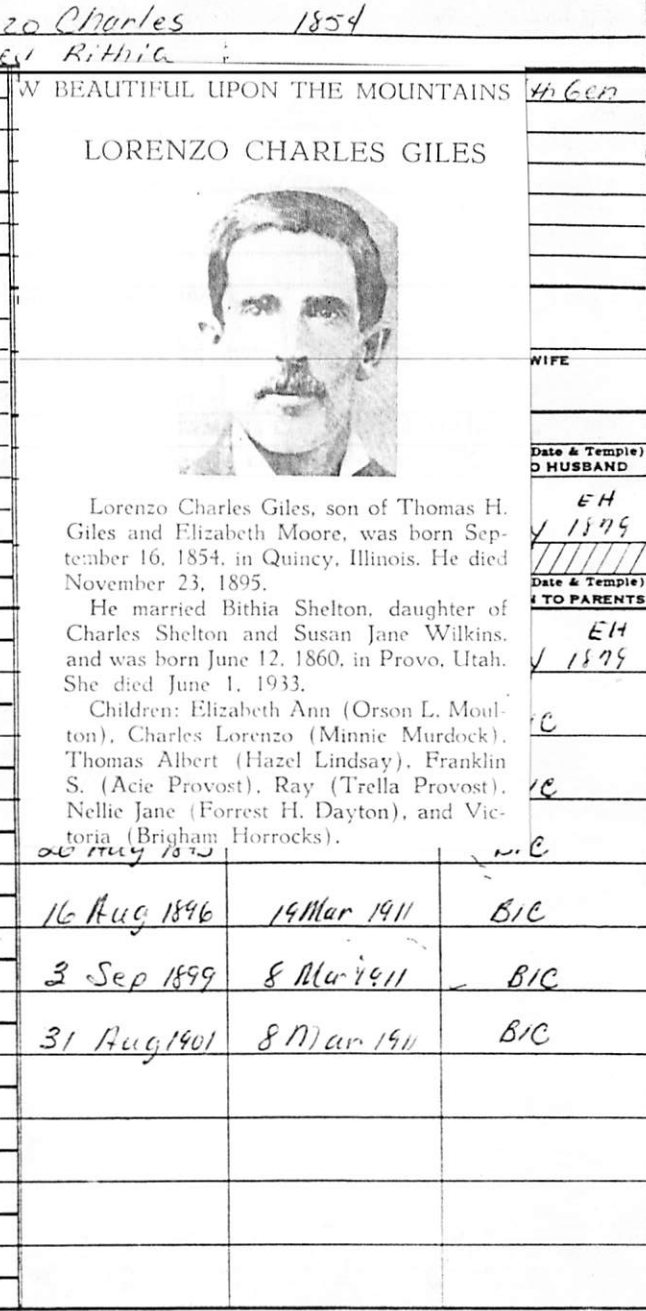 zo Charles 1854
W BEAUTIFUL UPON THE MOUNTAINS
LORENZO CHARLES GILES
WIFE
Date & Temple)
O HUSBAND
EH
1879
Date & Temple)
TO PARENTS
EH
1879
Lorenzo Charles Giles, son of Thomas H.
Giles and Elizabeth Moore, was born Sep-
tember 16, 1854, in Quincy, Illinois. He died
November 23, 1895.
He married Bithia Shelton, daughter of
Charles Shelton and Susan Jane Wilkins,
and was born June 12, 1860, in Provo, Utah.
She died June 1, 1933.
Children: Elizabeth Ann (Orson L. Moul-
ton), Charles Lorenzo (Minnie Murdock),
Thomas Albert (Hazel Lindsay), Franklin
S. (Acie Provost), Ray (Trella Provost),
Nellie Jane (Forrest H. Dayton), and Vic-
toria (Brigham Horrocks).
16 Aug 1896 19 Mar 1911 BIC
3 Sep 1899 8 Mar 1911 BIC
31 Aug 1901 8 Mar 1911 BIC